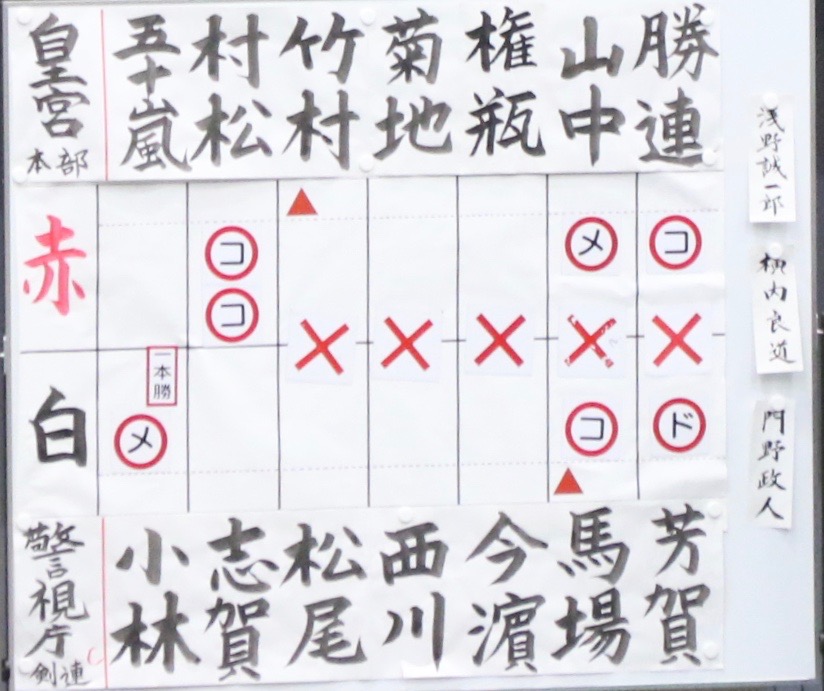 皇宮本部
五十嵐
村松
竹村
菊地
権瓶
山中
勝連
赤
コ
コ
メ
コ
白
一本勝
メ
コ
ド
警視庁剣連
小林
志賀
松尾
西川
今濵
馬場
芳賀
浅野誠一郎
栁内良道
門野政人